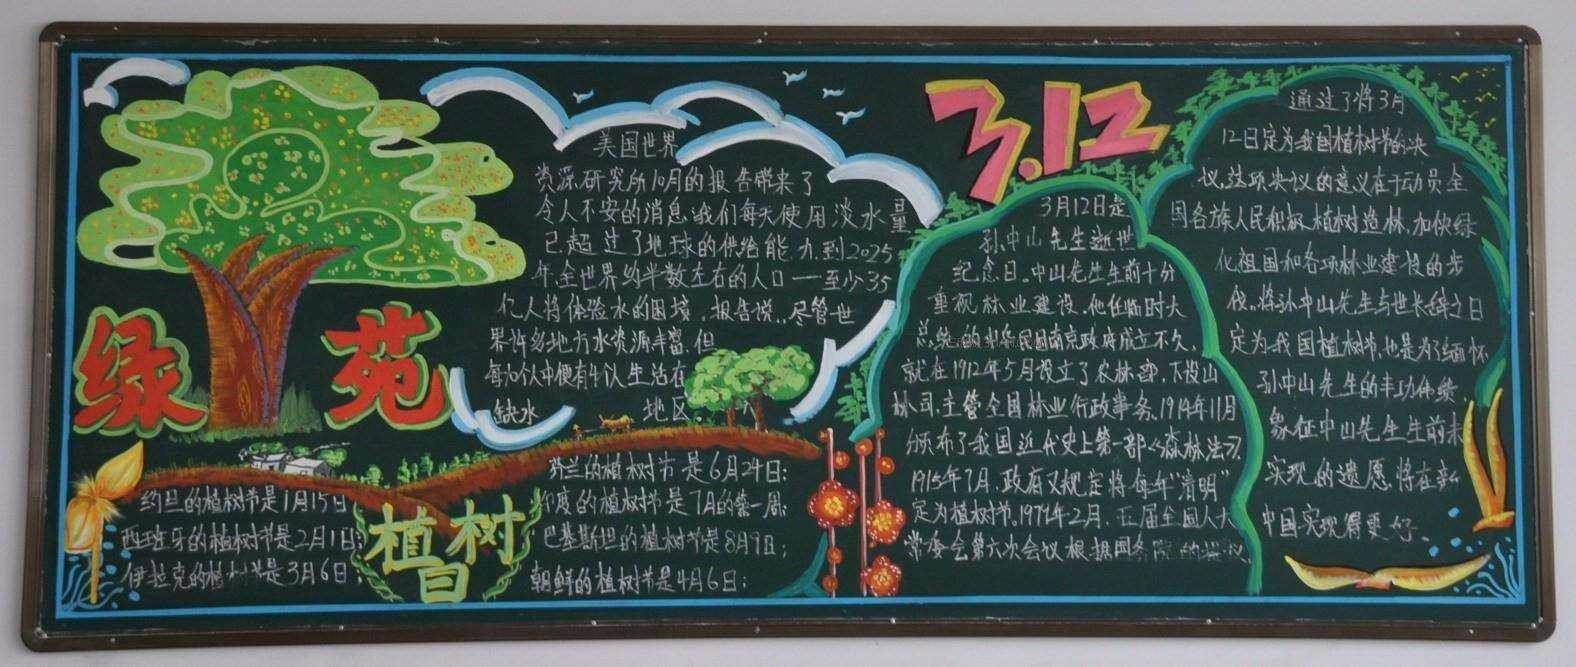 绿苑
美国世界
资源研究所10月的报告带来了
令人不安的消息:我们每天使用淡水量
已超过了地球的供给能力到2025
年,全世界约半数左右的人口一至少35
亿人将体验水的困境。报告说,尽管世
界许多地方水资源丰富,但
每10个人中便有4个人生活在
缺水 地区
约旦的植树节是1月15日
西班牙的植树节是2月1日;
伊拉克的植树节是3月6日;
植树
日
芬兰的植树节是6月24日;
印度的植树节是7月的第一周;
巴基斯坦的植树节是8月9日;
朝鲜的植树节是4月6日;
3.12
3月12日是
孙中山先生逝世
纪念日。中山先生生前十分
重视林业建设。他任临时大
总统的中华民国南京政府成立不久,
就在1912年5月设立了农林部,下设山
林司,主管全国林业行政事务,1914年11月
颁布了我国近代史上第一部《森林法》,
1915年7月,政府又规定将每年"清明"
定为植树节。1979年2月,五届全国人大
常委会第六次会议根据国务院的提议,
通过了将3月
12日定为我国植树节的决
议,这项决议的意义在于动员全
国各族人民积极植树造林,加快绿
化祖国和各项林业建设的步
伐。将孙中山先生与世长辞之日
定为我国植树节,也是为了缅怀
孙中山先生的丰功伟绩,
象征中山先生生前未
实现的遗愿,将在新
中国实现得更好。